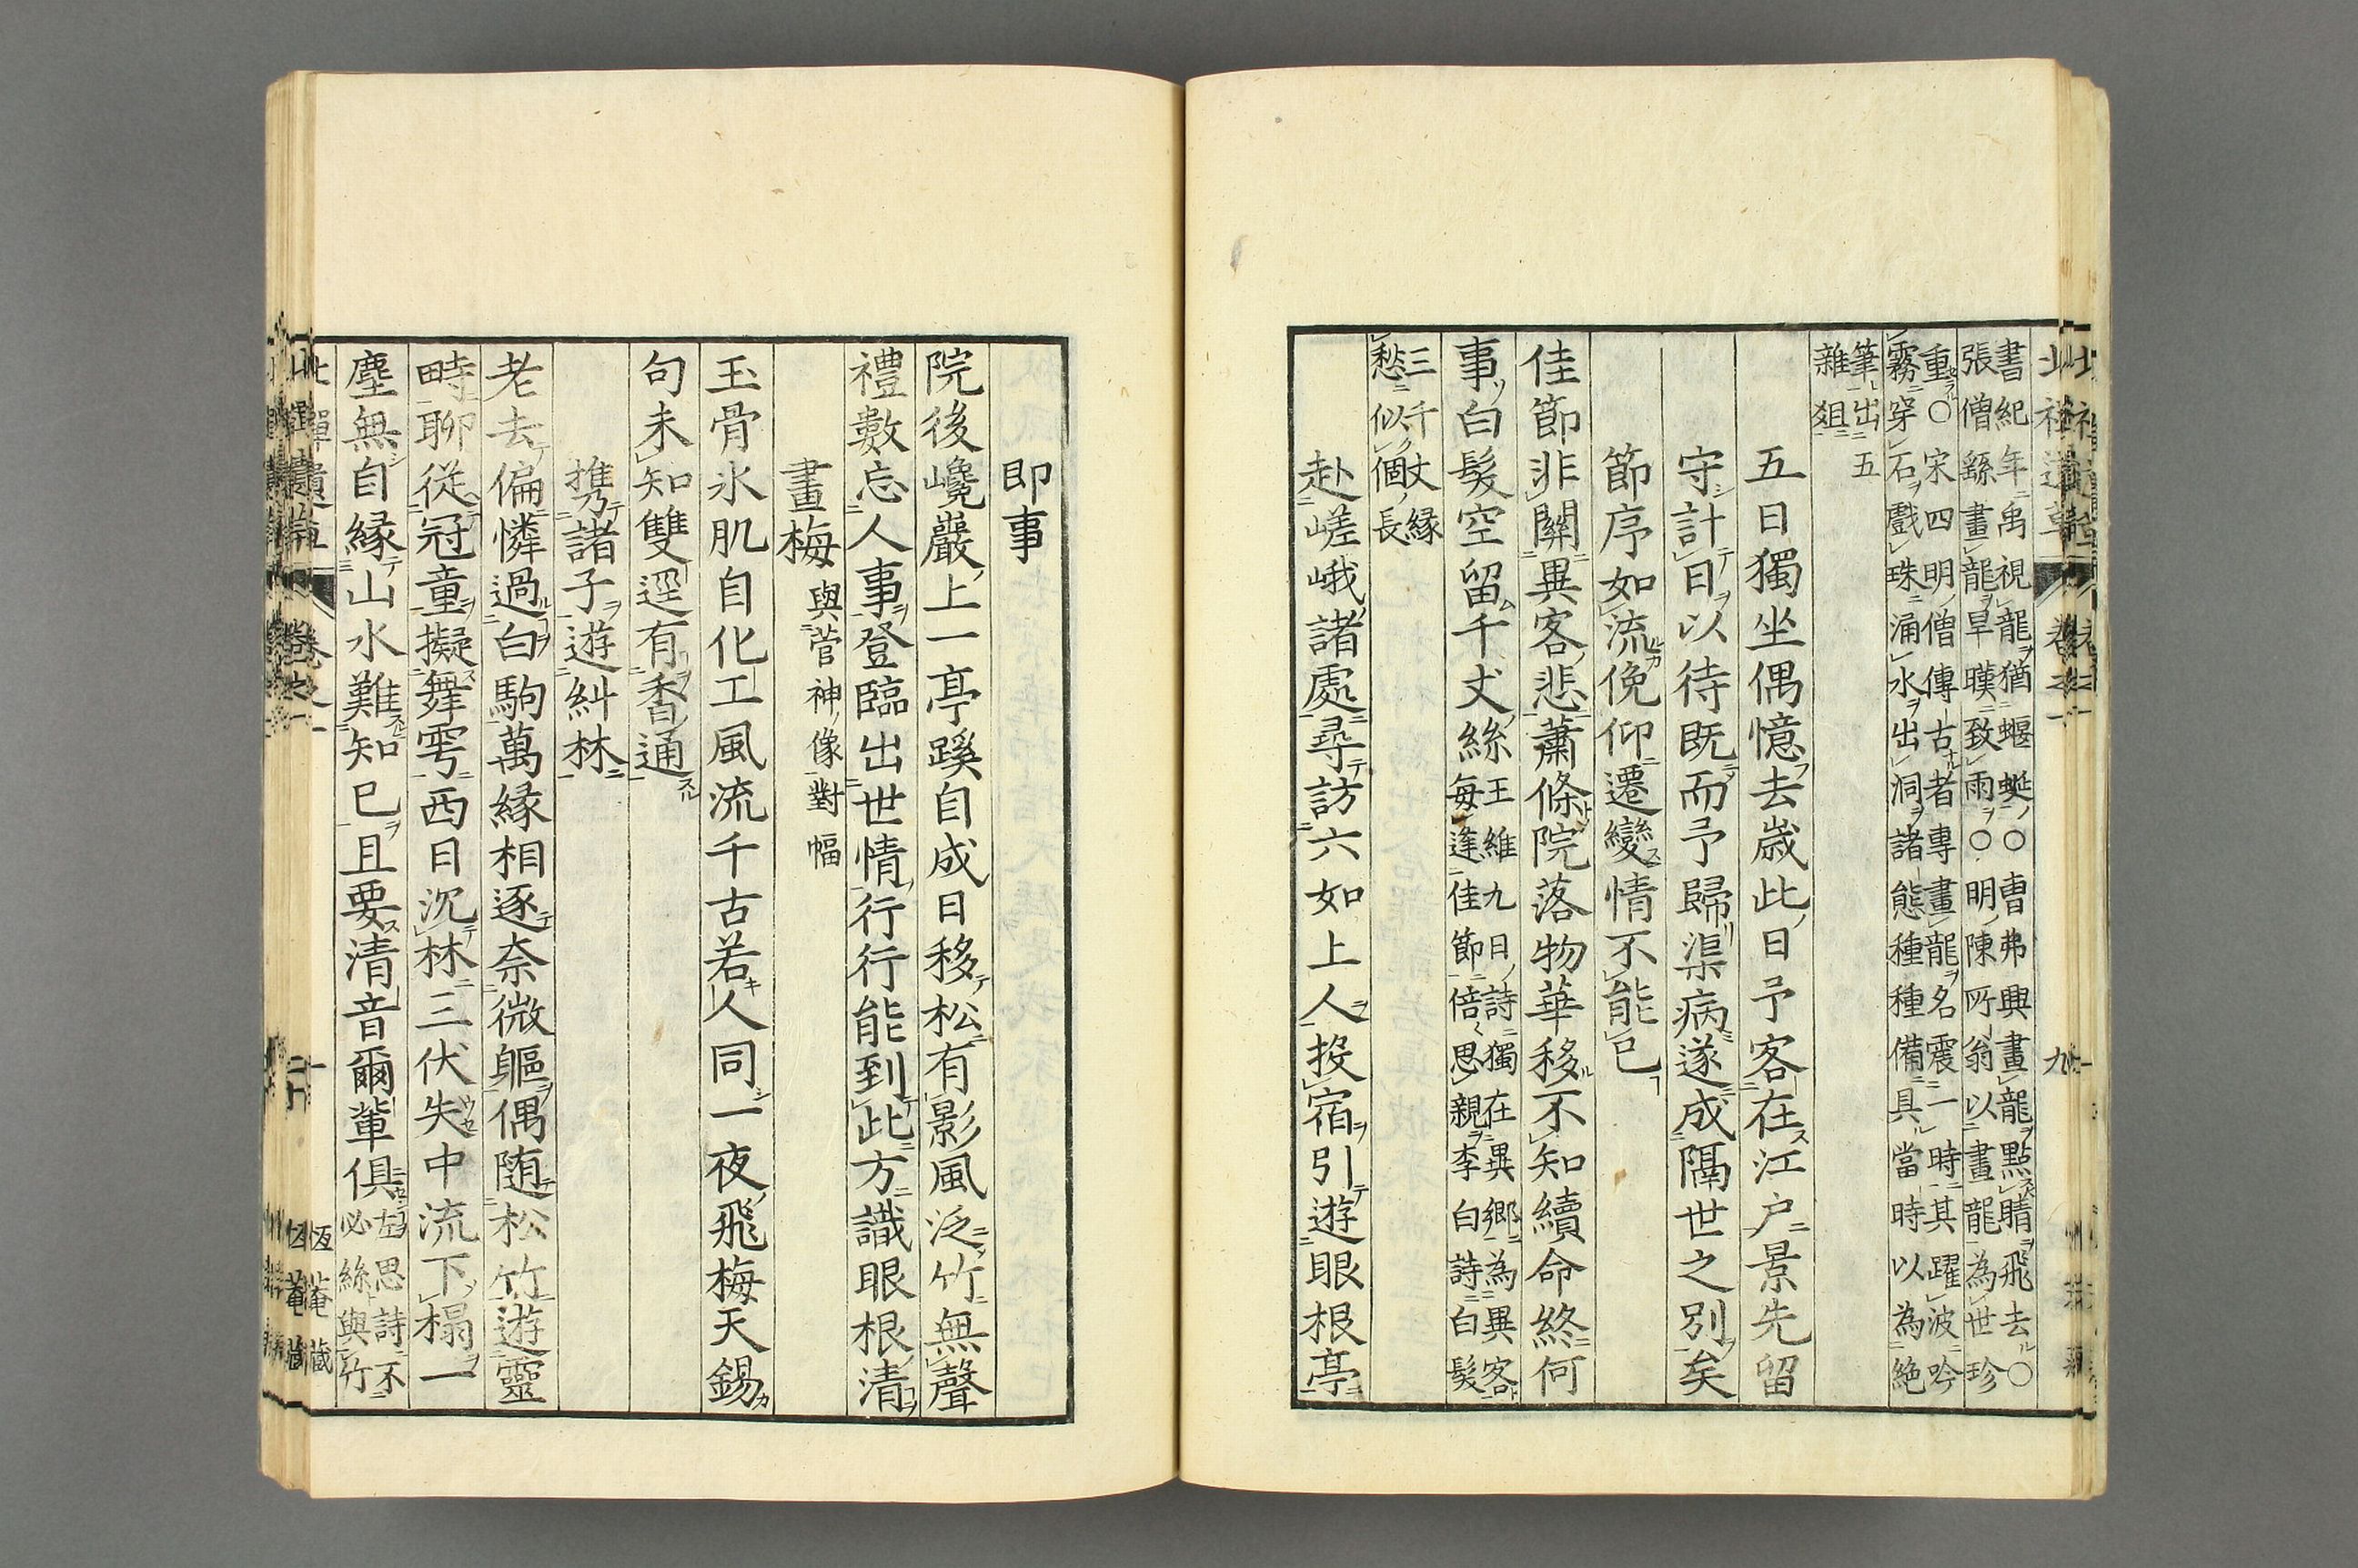 書紀年禹視龍猶蝘蜓〇曹弗興畫龍點睛飛去〇
張僧繇畫龍旱暵致雨〇明陳所翁以畫龍為世珍
重〇宋四明僧傳古者專畫龍名震一時其躍波吟
霧穿石戲珠涌水出洞諸態種種備具當時以為絶
筆出五
雜俎
五日獨坐偶憶去歲此日予客在江戸景先留
守計日以待既而予歸渠病遂成隔世之別矣
節序如流俛仰遷變情不能已
佳節非關異客悲蕭條院落物華移不知續命終何
事白髮空留千丈絲
王維九日詩獨在異郷為異客
每逢佳節倍思親李白詩白髮
三千丈縁
愁似個長
赴嵯峨諸處尋訪六如上人投宿引遊眼根亭
即事
院後巉巖上一亭蹊自成日移松有影風泛竹無聲
禮數忘人事登臨出世情行行能到此方識眼根清
畫梅
與菅神像對幅
玉骨氷肌自化工風流千古若人同一夜飛梅天錫
句未知雙逕有香通
携諸子遊糾林
老去偏憐過白駒萬縁相逐奈微軀偶随松竹遊靈
畤聊從冠童擬舞雩西日沉林三伏失中流下榻一
塵無自縁山水難知已且要清音爾輩俱
左思詩不
必絲與竹